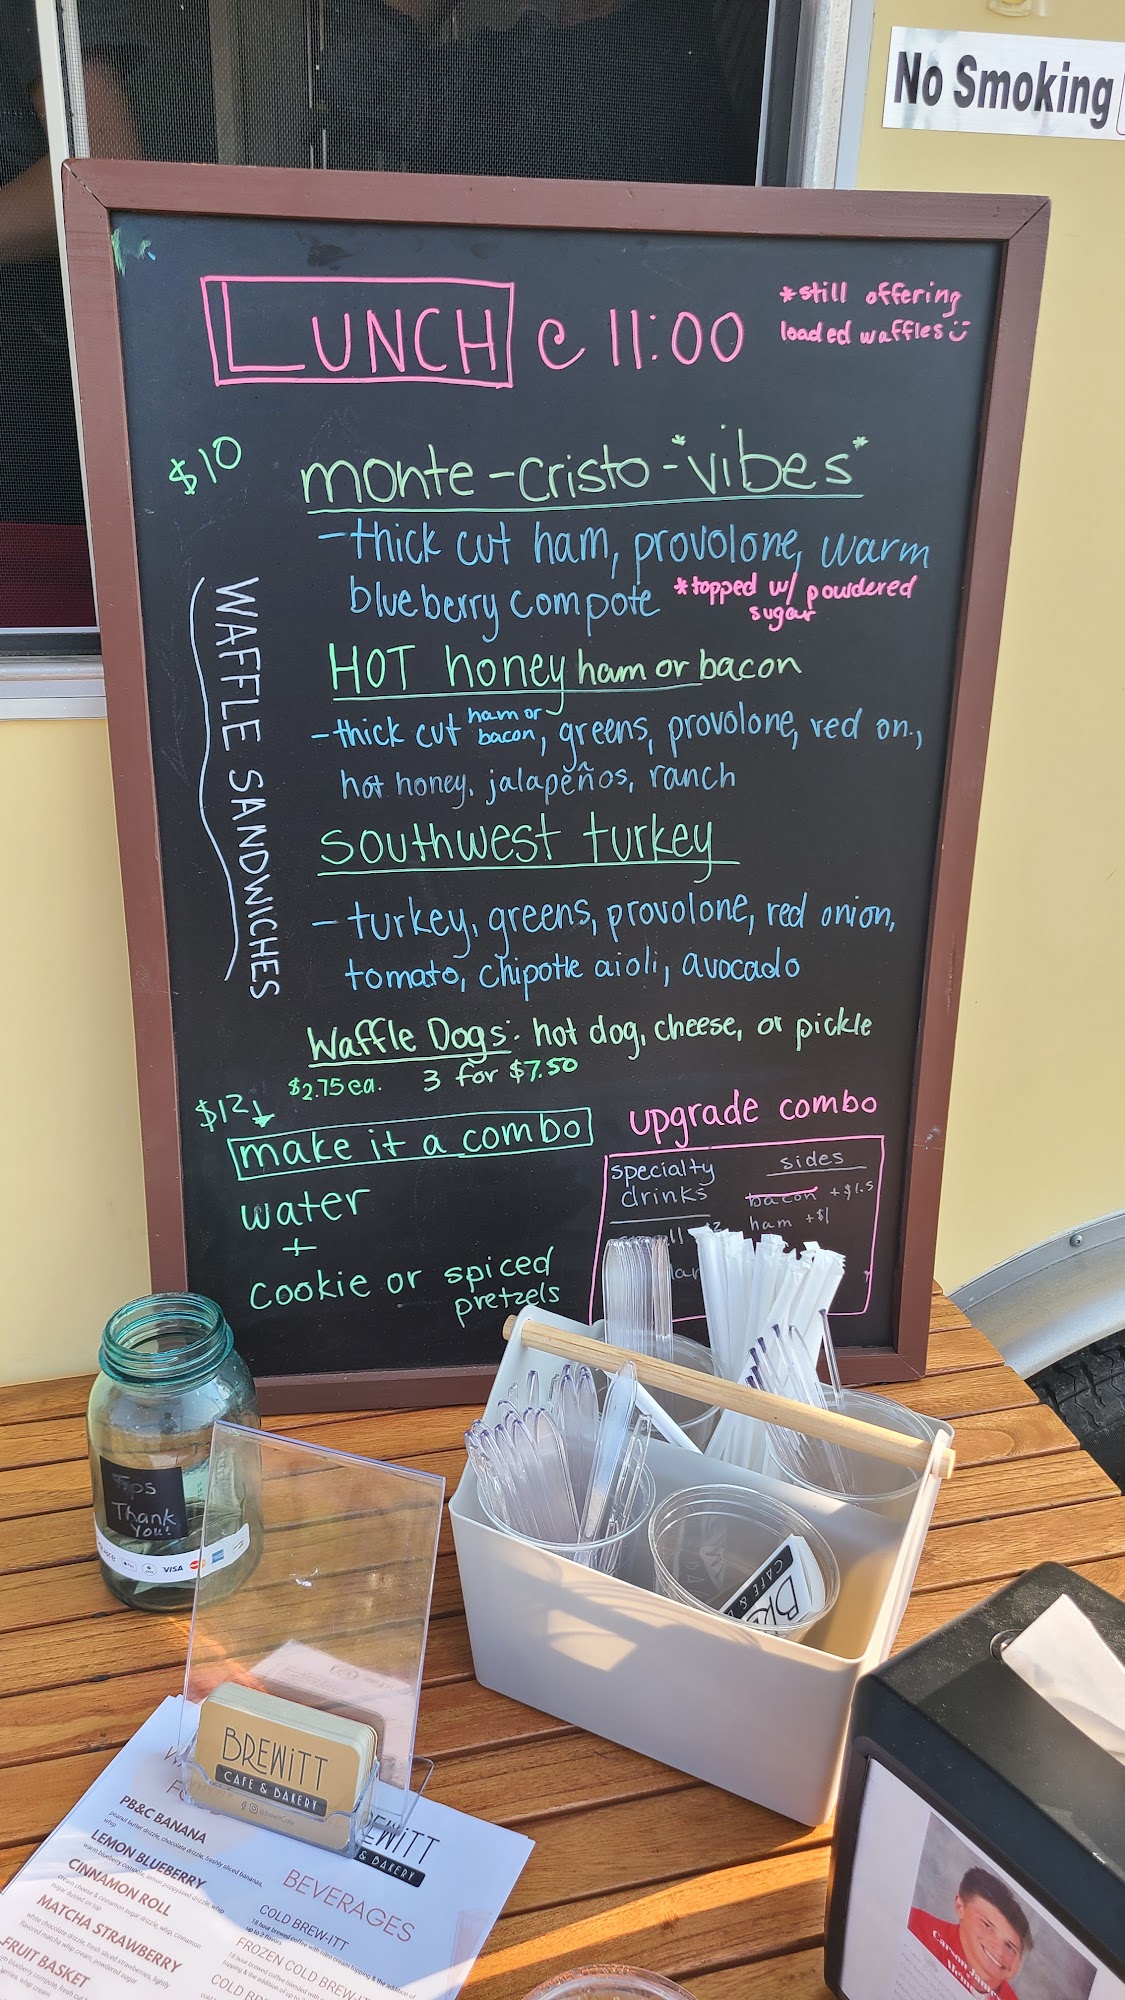 No Smoking
LUNCH @ 11:00
*still offering
loaded waffles
$10
WAFFLE SANDWICHES
monte-cristo-*vibes*
-thick cut ham, provolone, warm
blueberry compote *topped w/ powdered
sugar
HOT honey ham or bacon
-thick cut ham or bacon, greens, provolone, red on.,
hot honey, jalapeños, ranch
southwest turkey
-turkey, greens, provolone, red onion,
tomato, chipotle aioli, avocado
Waffle Dogs: hot dog, cheese, or pickle
$2.75 ea. 3 for $7.50
$12↓
make it a combo
water
+
cookie or spiced
pretzels
upgrade combo
specialty
drinks
sides
bacon +$1.5
ham +$1
Tips
Thank
You!
VISA
BREWITT
CAFE & BAKERY
BREWITT
& BAKERY
PB&C BANANA
peanut butter drizzle, chocolate drizzle, freshly sliced bananas,
whip
LEMON BLUEBERRY
warm blueberry compote, lemon poppyseed drizzle, whip
CINNAMON ROLL
cream cheese & cinnamon sugar drizzle, whip, cinnamon
sugar dusted on top
MATCHA STRAWBERRY
white chocolate drizzle, fresh sliced strawberries, lightly
flavored matcha whip cream, powdered sugar
FRUIT BASKET
BEVERAGES
COLD BREW-ITT
18 hour brewed coffee
up to 2 flavors
FROZEN COLD BREW-ITT
18 hour brewed coffee blended with
topping & the addition of up to
COLD